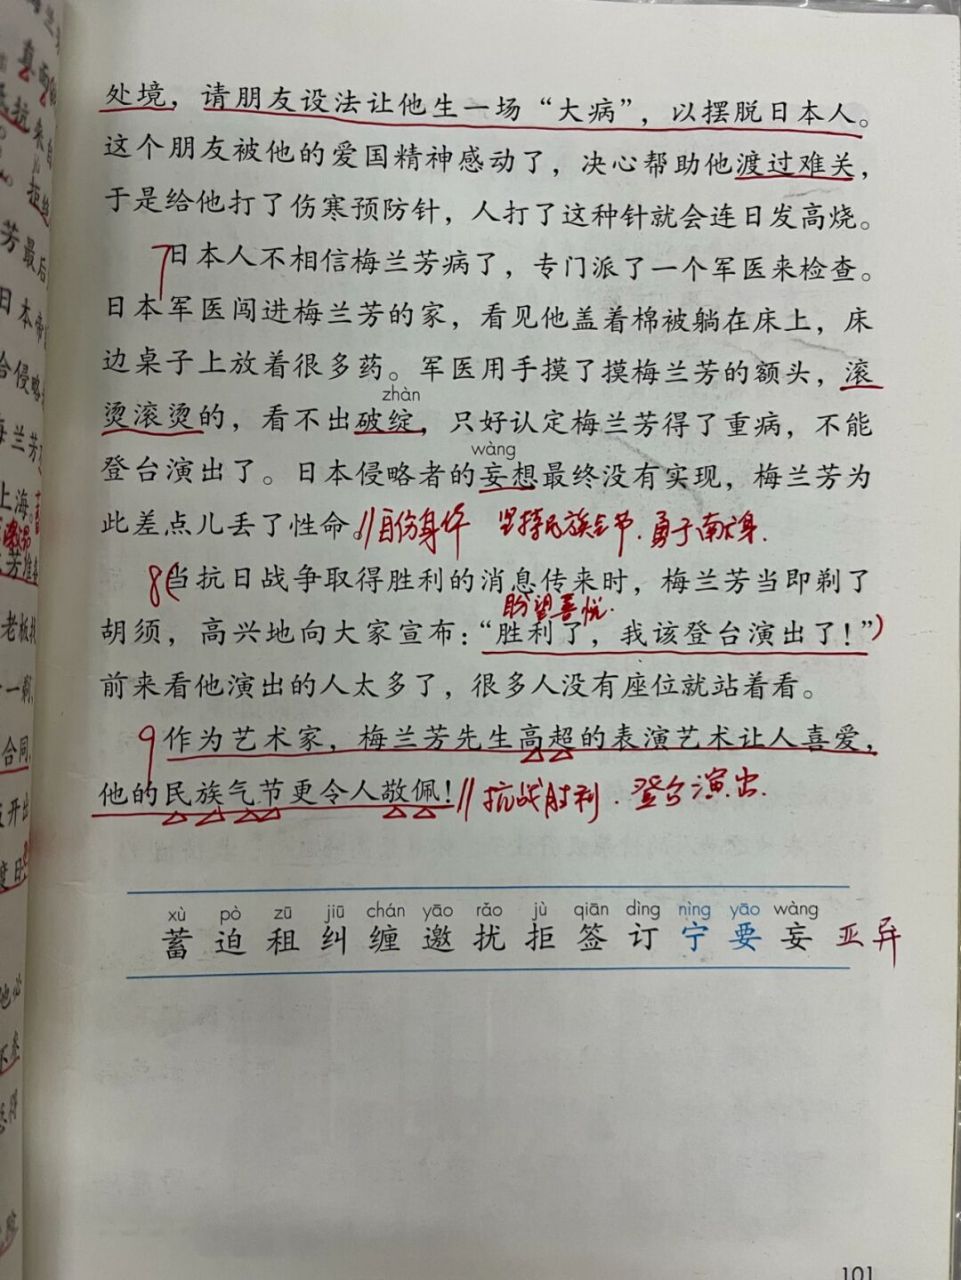 处境，请朋友设法让他生一场“大病”，以摆脱日本人。
这个朋友被他的爱国精神感动了，决心帮助他渡过难关，
于是给他打了伤寒预防针，人打了这种针就会连日发高烧。
7日本人不相信梅兰芳病了，专门派了一个军医来检查。
日本军医闯进梅兰芳的家，看见他盖着棉被躺在床上，床
边桌子上放着很多药。军医用手摸了摸梅兰芳的额头，滚
zhàn
烫滚烫的，看不出破绽，只好认定梅兰芳得了重病，不能
wàng
登台演出了。日本侵略者的妄想最终没有实现，梅兰芳为
此差点儿丢了性命。//自伤身体 坚持民族气节.勇于献身.
8当抗日战争取得胜利的消息传来时，梅兰芳当即剃了
盼望喜悦.
胡须，高兴地向大家宣布：“胜利了，我该登台演出了！”
前来看他演出的人太多了，很多人没有座位就站着看。
9作为艺术家，梅兰芳先生高超的表演艺术让人喜爱，
他的民族气节更令人敬佩！//抗战胜利.登台演出.
xù pò zū jiū chán yāo rǎo jù qiān dìng nìng yāo wàng
蓄 迫 租 纠 缠 邀 扰 拒 签 订 宁 要 妄
101